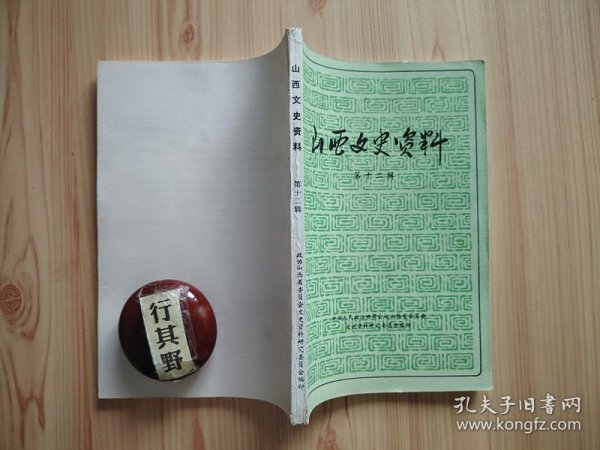 山西文史资料
第十二辑
政协山西省委员会文史资料研究委员会编印
山西文史资料
第十二辑
中国人民政治协商会议山西省委员会
文史资料研究委员会编印
行其野
孔夫子旧书网
www.kongfz.com